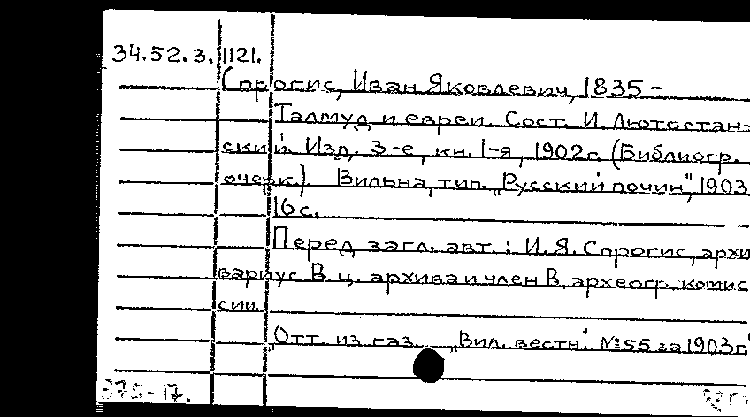 34.52.3. 1121.
Спрогис, Иван Яковлевич, 1835 -
Талмуд и евреи. Сост. И. Лютостан-
ский. Изд. 3-е, кн. 1-я, 1902 г. (Библиогр.
очерк.). Вильна, тип. „Русский почин", 1903
16 с.
Перед загл. авт.: И.Я. Спрогис, архи
вариус В. ц. архива и член В. археогр. комис
сии.
„Отт. из газ. „Вил. вестн." № 55 за 1903 г"
375-17.